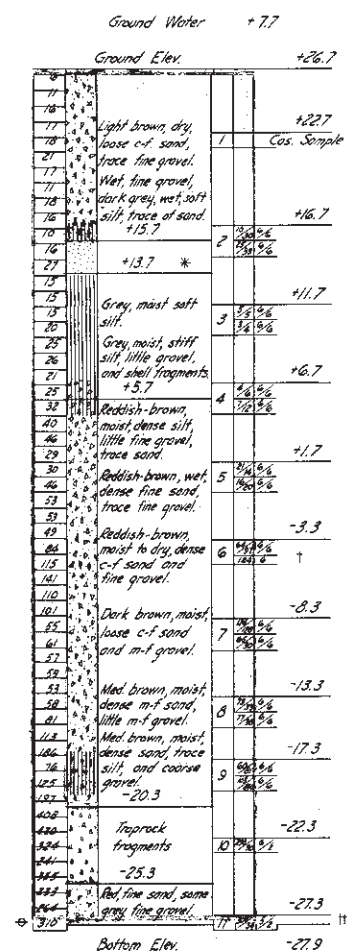 Ground Water +7.7
Ground Elev. +26.7
11
16
17
18
21
17
11
18
16
10
16
27
15
15
13
20
25
26
21
25
32
40
46
29
30
46
53
53
49
84
115
141
110
101
55
61
57
59
53
58
81
113
186
76
125
197
408
430
324
241
335
333
264
310
Light brown, dry,
loose c-f sand,
trace fine gravel.
Wet, fine gravel,
dark grey, wet, soft
silt, trace of sand.
+15.7
+13.7 *
Grey, moist soft
silt.
Grey, moist, stiff
silt, little gravel,
and shell fragments.
+5.7
Reddish-brown,
moist, dense silt,
little fine gravel,
trace sand.
Reddish-brown, wet,
dense fine sand,
trace fine gravel.
Reddish-brown,
moist to dry, dense
c-f sand and
fine gravel.
Dark brown, moist,
loose c-f sand
and m-f gravel.
Med. brown, moist,
dense m-f sand,
little m-f gravel.
Med. brown, moist,
dense sand, trace
silt, and coarse
gravel.
-20.3
Traprock
fragments
-25.3
Red, fine sand, some
grey fine gravel
+22.7
1 Cas. Sample
+16.7
2
+11.7
3
+6.7
4
+1.7
5
-3.3
6 †
-8.3
7
-13.3
8
-17.3
9
-22.3
10
-27.3
11 ††
Bottom Elev. -27.9